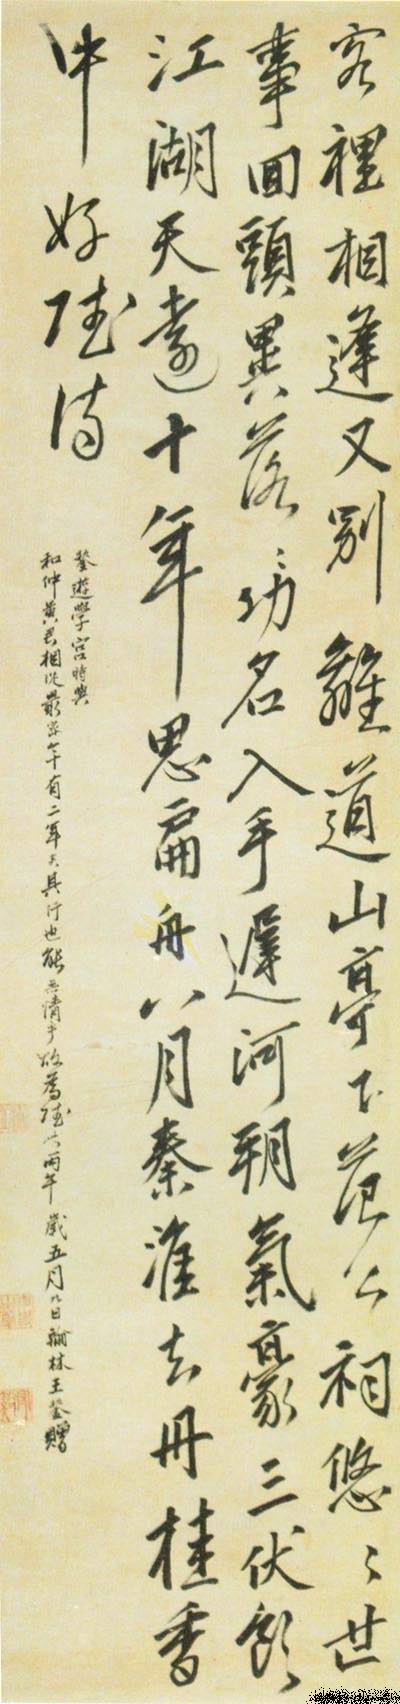 客裡相逢又别離道山亭下范公祠悠〻世
事回頭異落〻功名入手遲河朔氣豪三伏飲
江湖天遠十年思扁舟八月秦淮去丹桂香
中好賦詩
鏊遊學宮時與
和仲黃君相從最 十有二年 其行也能無情乎 為賦 丙午歲五月 日翰林王鏊贈